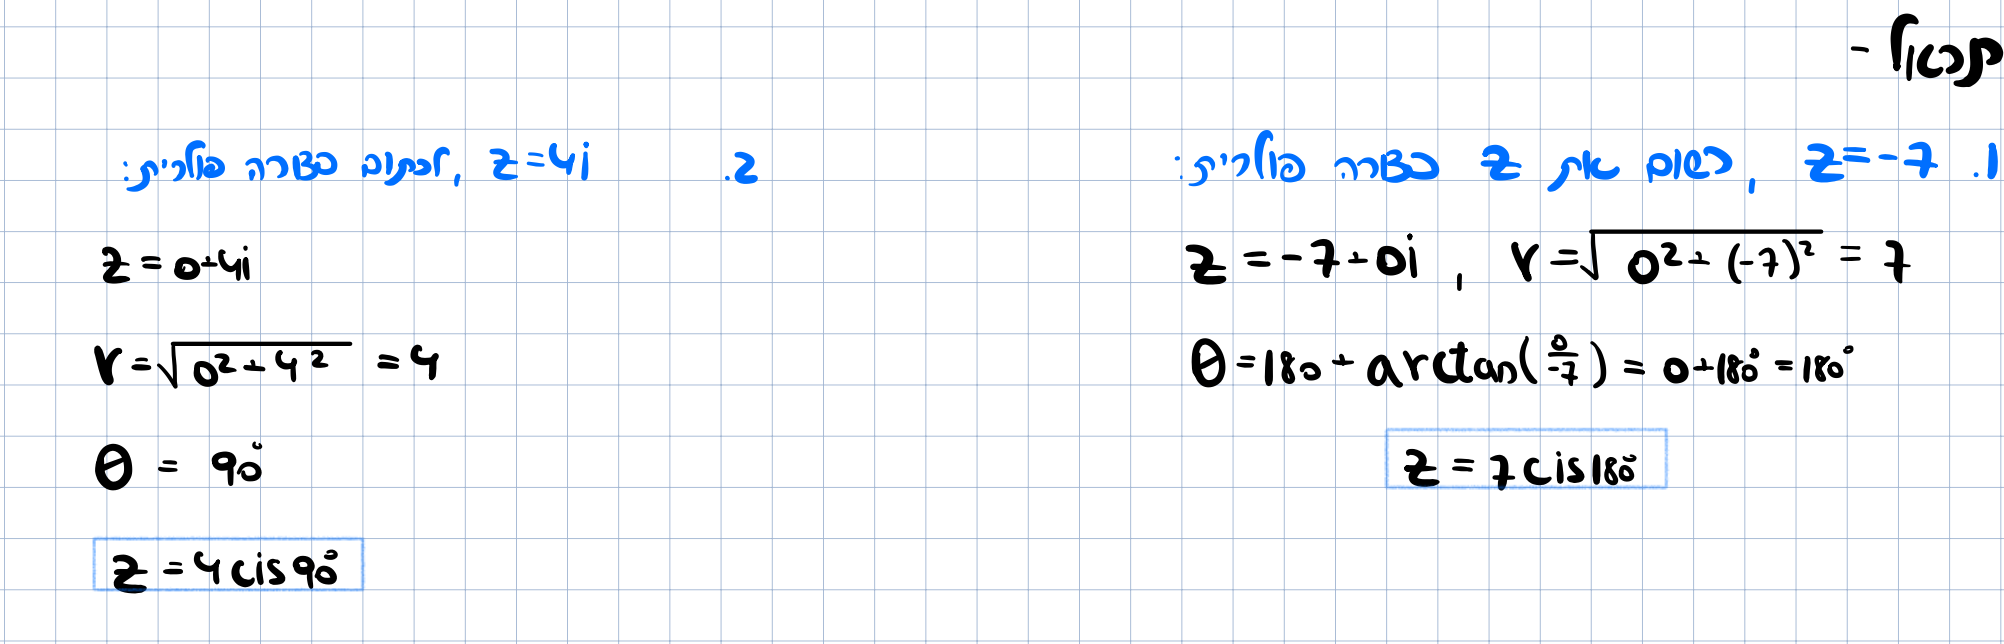 תרגול -
1. z=-7 , רשום את z בצורה פולרית:
z = -7+0i , r=√(0²+(-7)²) = 7
θ=180+arctan(0/-7) = 0+180°=180°
z = 7cis180°
2. z=4i , לכתוב בצורה פולרית:
z=0+4i
r=√(0²+4²) =4
θ = 90°
z=4cis90°